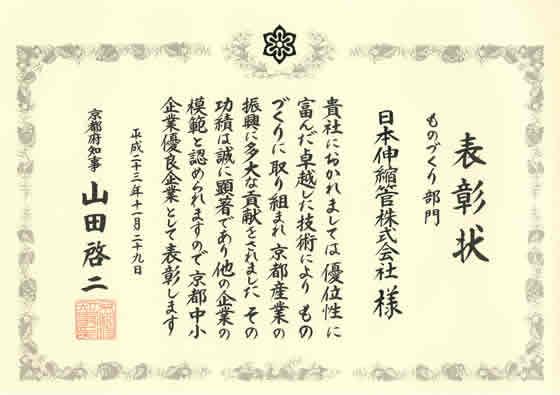 表彰状
ものづくり部門
日本伸縮管株式会社 様
貴社におかれましては優位性に
富んだ卓越した技術により もの
づくりに取り組まれ 京都産業の
振興に多大な貢献をされました その
功績は誠に顕著であり他の企業の
模範と認められますので京都中小
企業優良企業として表彰します
平成二十三年十一月二十九日
京都府知事 山田啓二